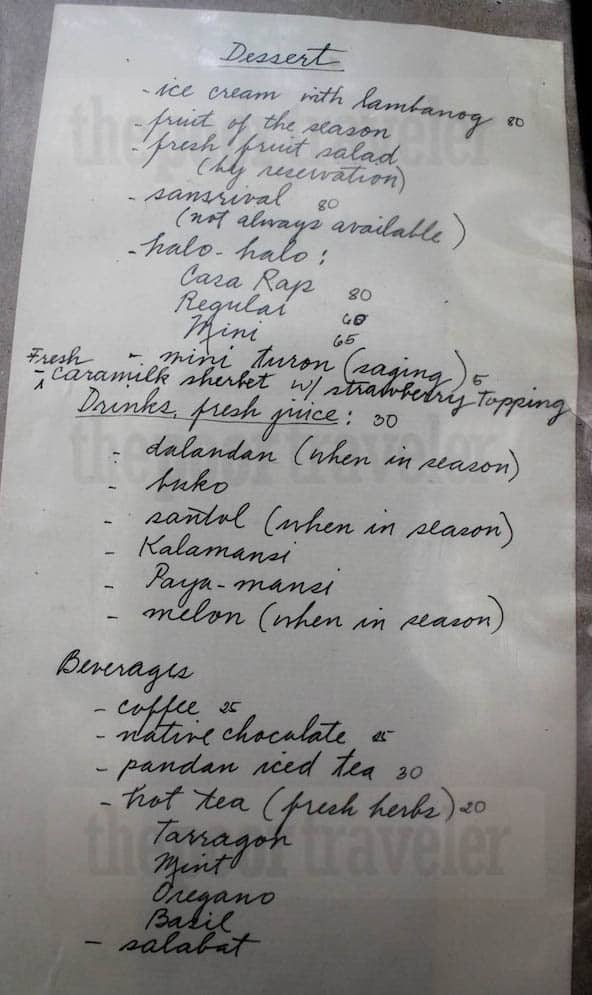 Dessert
- ice cream with lambanog 80
- fruit of the season
- fresh fruit salad
(by reservation)
- sansrival 80
(not always available)
- halo-halo:
Casa Rap 80
Regular 60
Mini 65
- mini turon (saging) 5
- Fresh caramilk sherbet w/ strawberry topping
Drinks, fresh juice: 30
- dalandan (when in season)
- buko
- santol (when in season)
- Kalamansi
- Paya-mansi
- melon (when in season)
Beverages
- coffee 25
- native chocolate 25
- pandan iced tea 30
- hot tea (fresh herbs) 20
Tarragon
Mint
Oregano
Basil
- salabat
the poor traveler
the poor traveler
the poor traveler